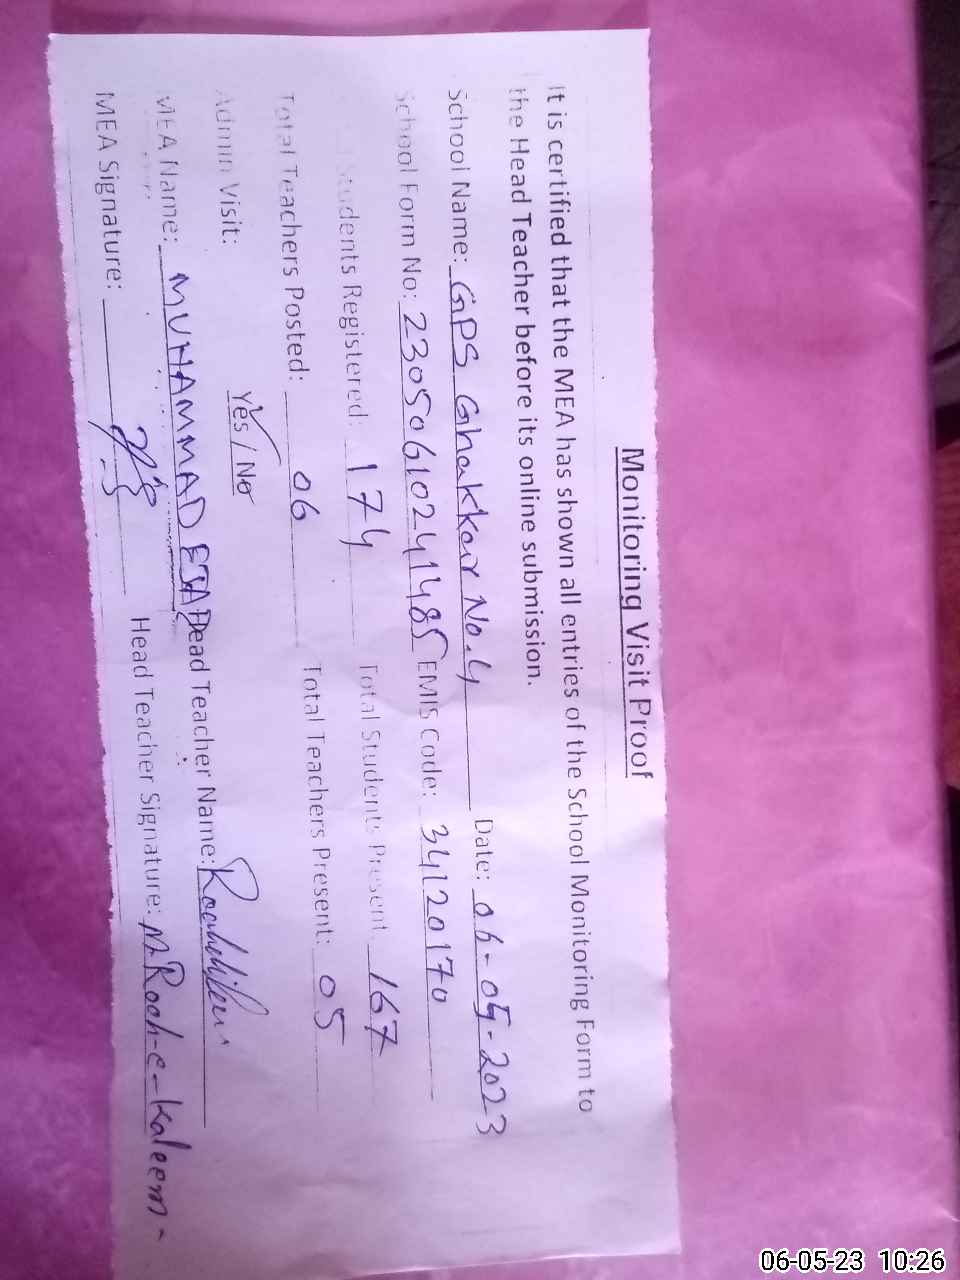 Monitoring Visit Proof
It is certified that the MEA has shown all entries of the School Monitoring Form to
the Head Teacher before its online submission.
School Name: GPS Ghakkar No.4 Date: 06-05-2023
School Form No: 23050610241485 EMIS Code: 34120170
Students Registered: 174 Total Students Present 167
Total Teachers Posted: 06 Total Teachers Present: 05
Admin Visit: Yes / No
MEA Name: MUHAMMAD EJAZ Head Teacher Name:
MEA Signature: Head Teacher Signature: M.Rooh-e-Kaleem-
06-05-23 10:26